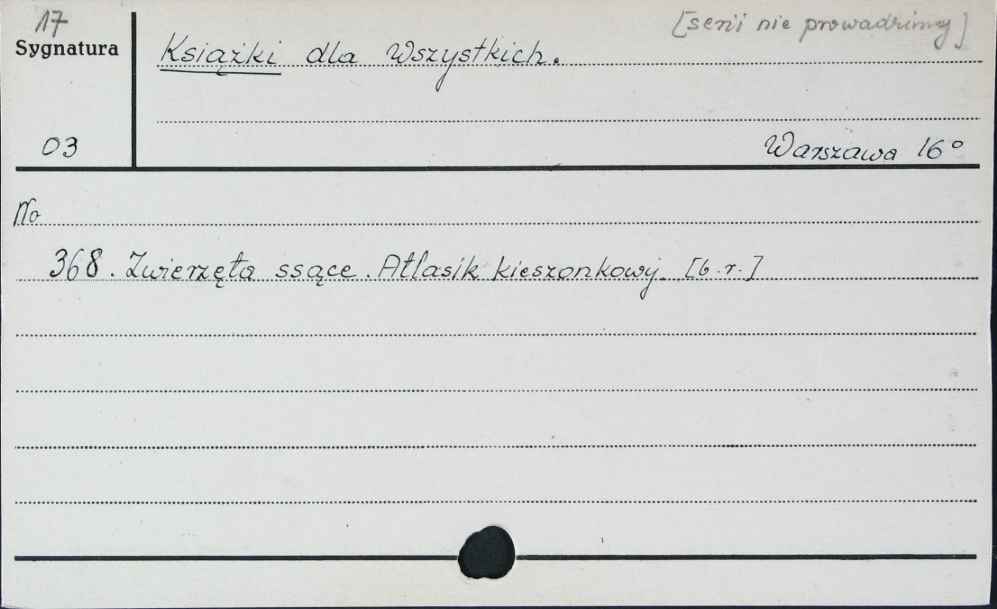 17
[serii nie prowadzimy]
Sygnatura
Książki dla Wszystkich.
03
Warszawa 16°
No
368. Zwierzęta ssące. Atlasik kieszonkowy. [b.r.]